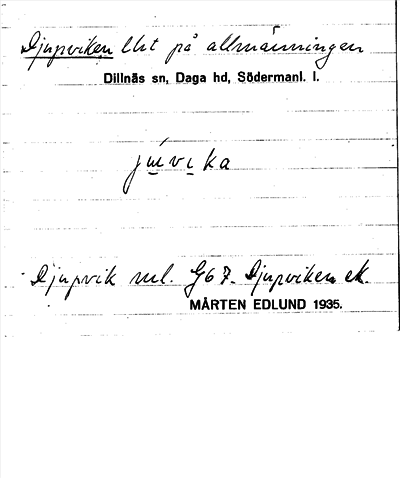 Djupviken lht på allmänningen
Dillnäs sn, Daga hd, Södermanl. l.
júvika
Djupvik ml. G67. Djupviken ek.
MÅRTEN EDLUND 1935.